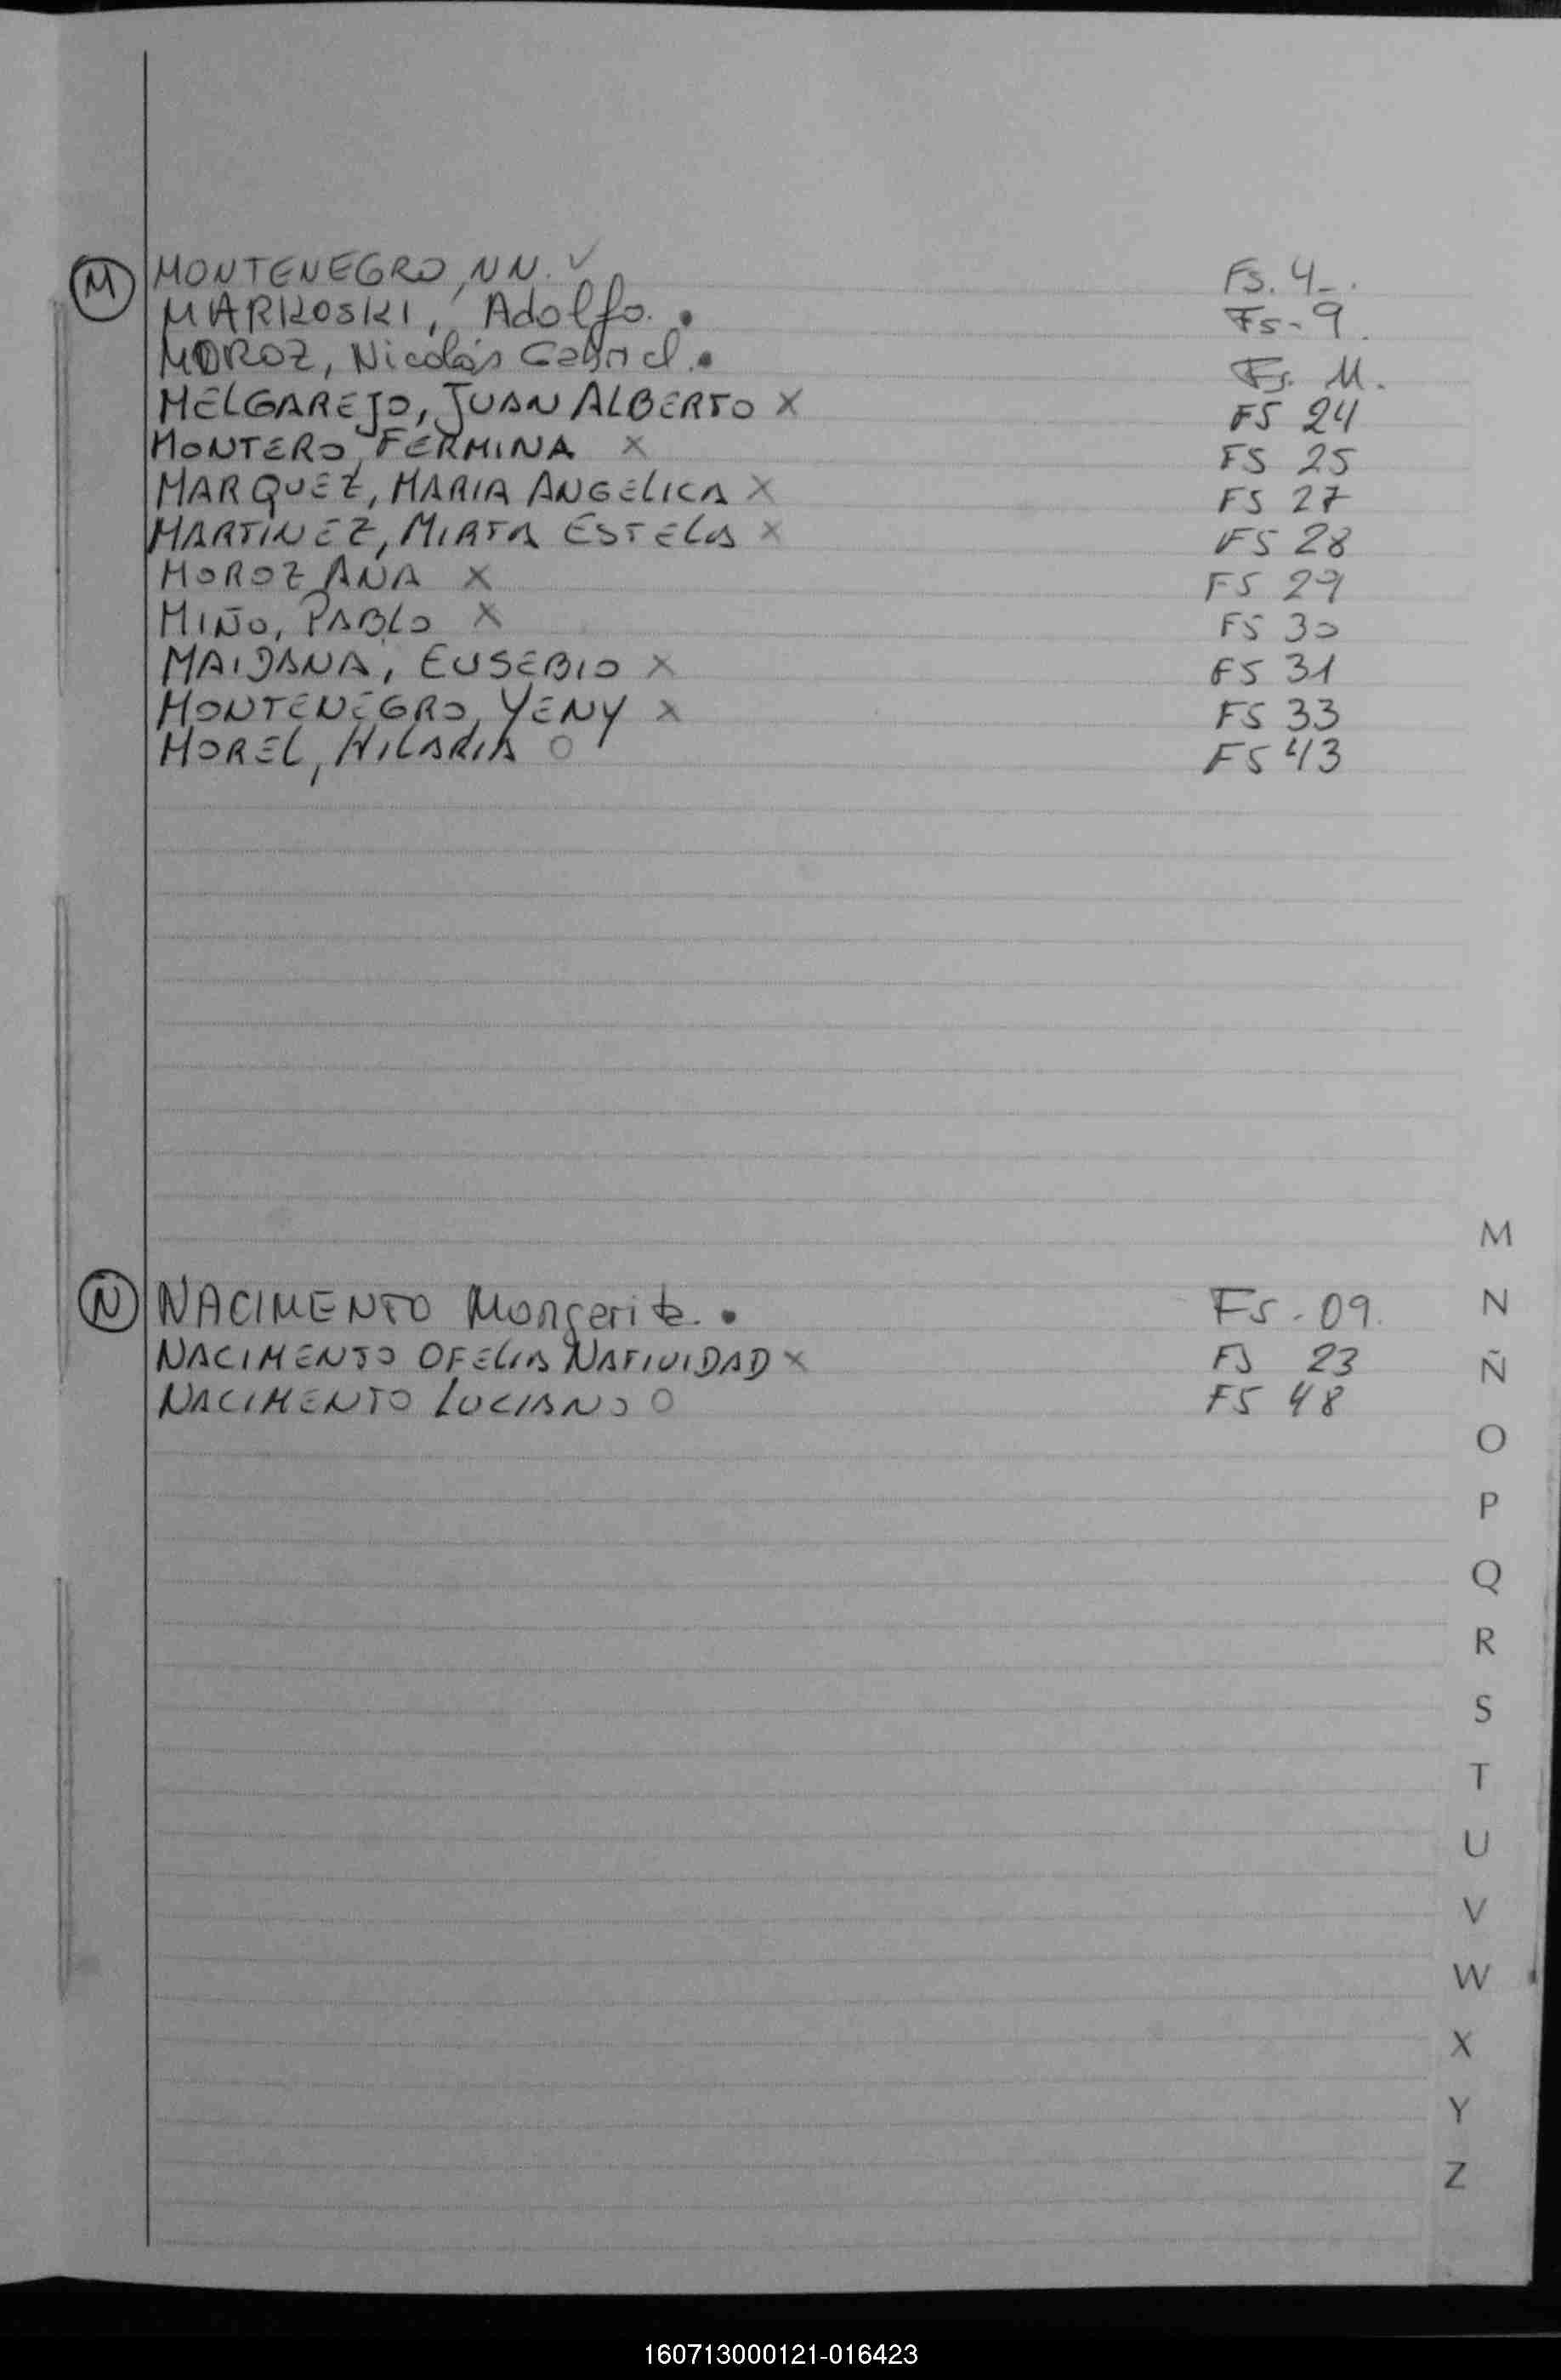 M MONTENEGRO, NN. ✓ Fs. 4_.
MARKOSKI, Adolfo. • Fs-9.
MOROZ, Nicolás Gabriel. • Fs. 11.
MELGAREJO, JUAN ALBERTO X FS 24
MONTERO, FERMINA X FS 25
MARQUEZ, MARIA ANGELICA X FS 27
MARTINEZ, MIRTA ESTELA X FS 28
MOROZ ANA X FS 29
MIÑO, PABLO X FS 30
MAIDANA, EUSEBIO X FS 31
MONTENEGRO, YENY X FS 33
MOREL, HILARIA O FS 43
N NACIMENTO Margarita. • Fs-09.
NACIMENTO OFELIA NATIVIDAD X FS 23
NACIMENTO LUCIANO O FS 48
M
N
Ñ
O
P
Q
R
S
T
U
V
W
X
Y
Z
160713000121-016423